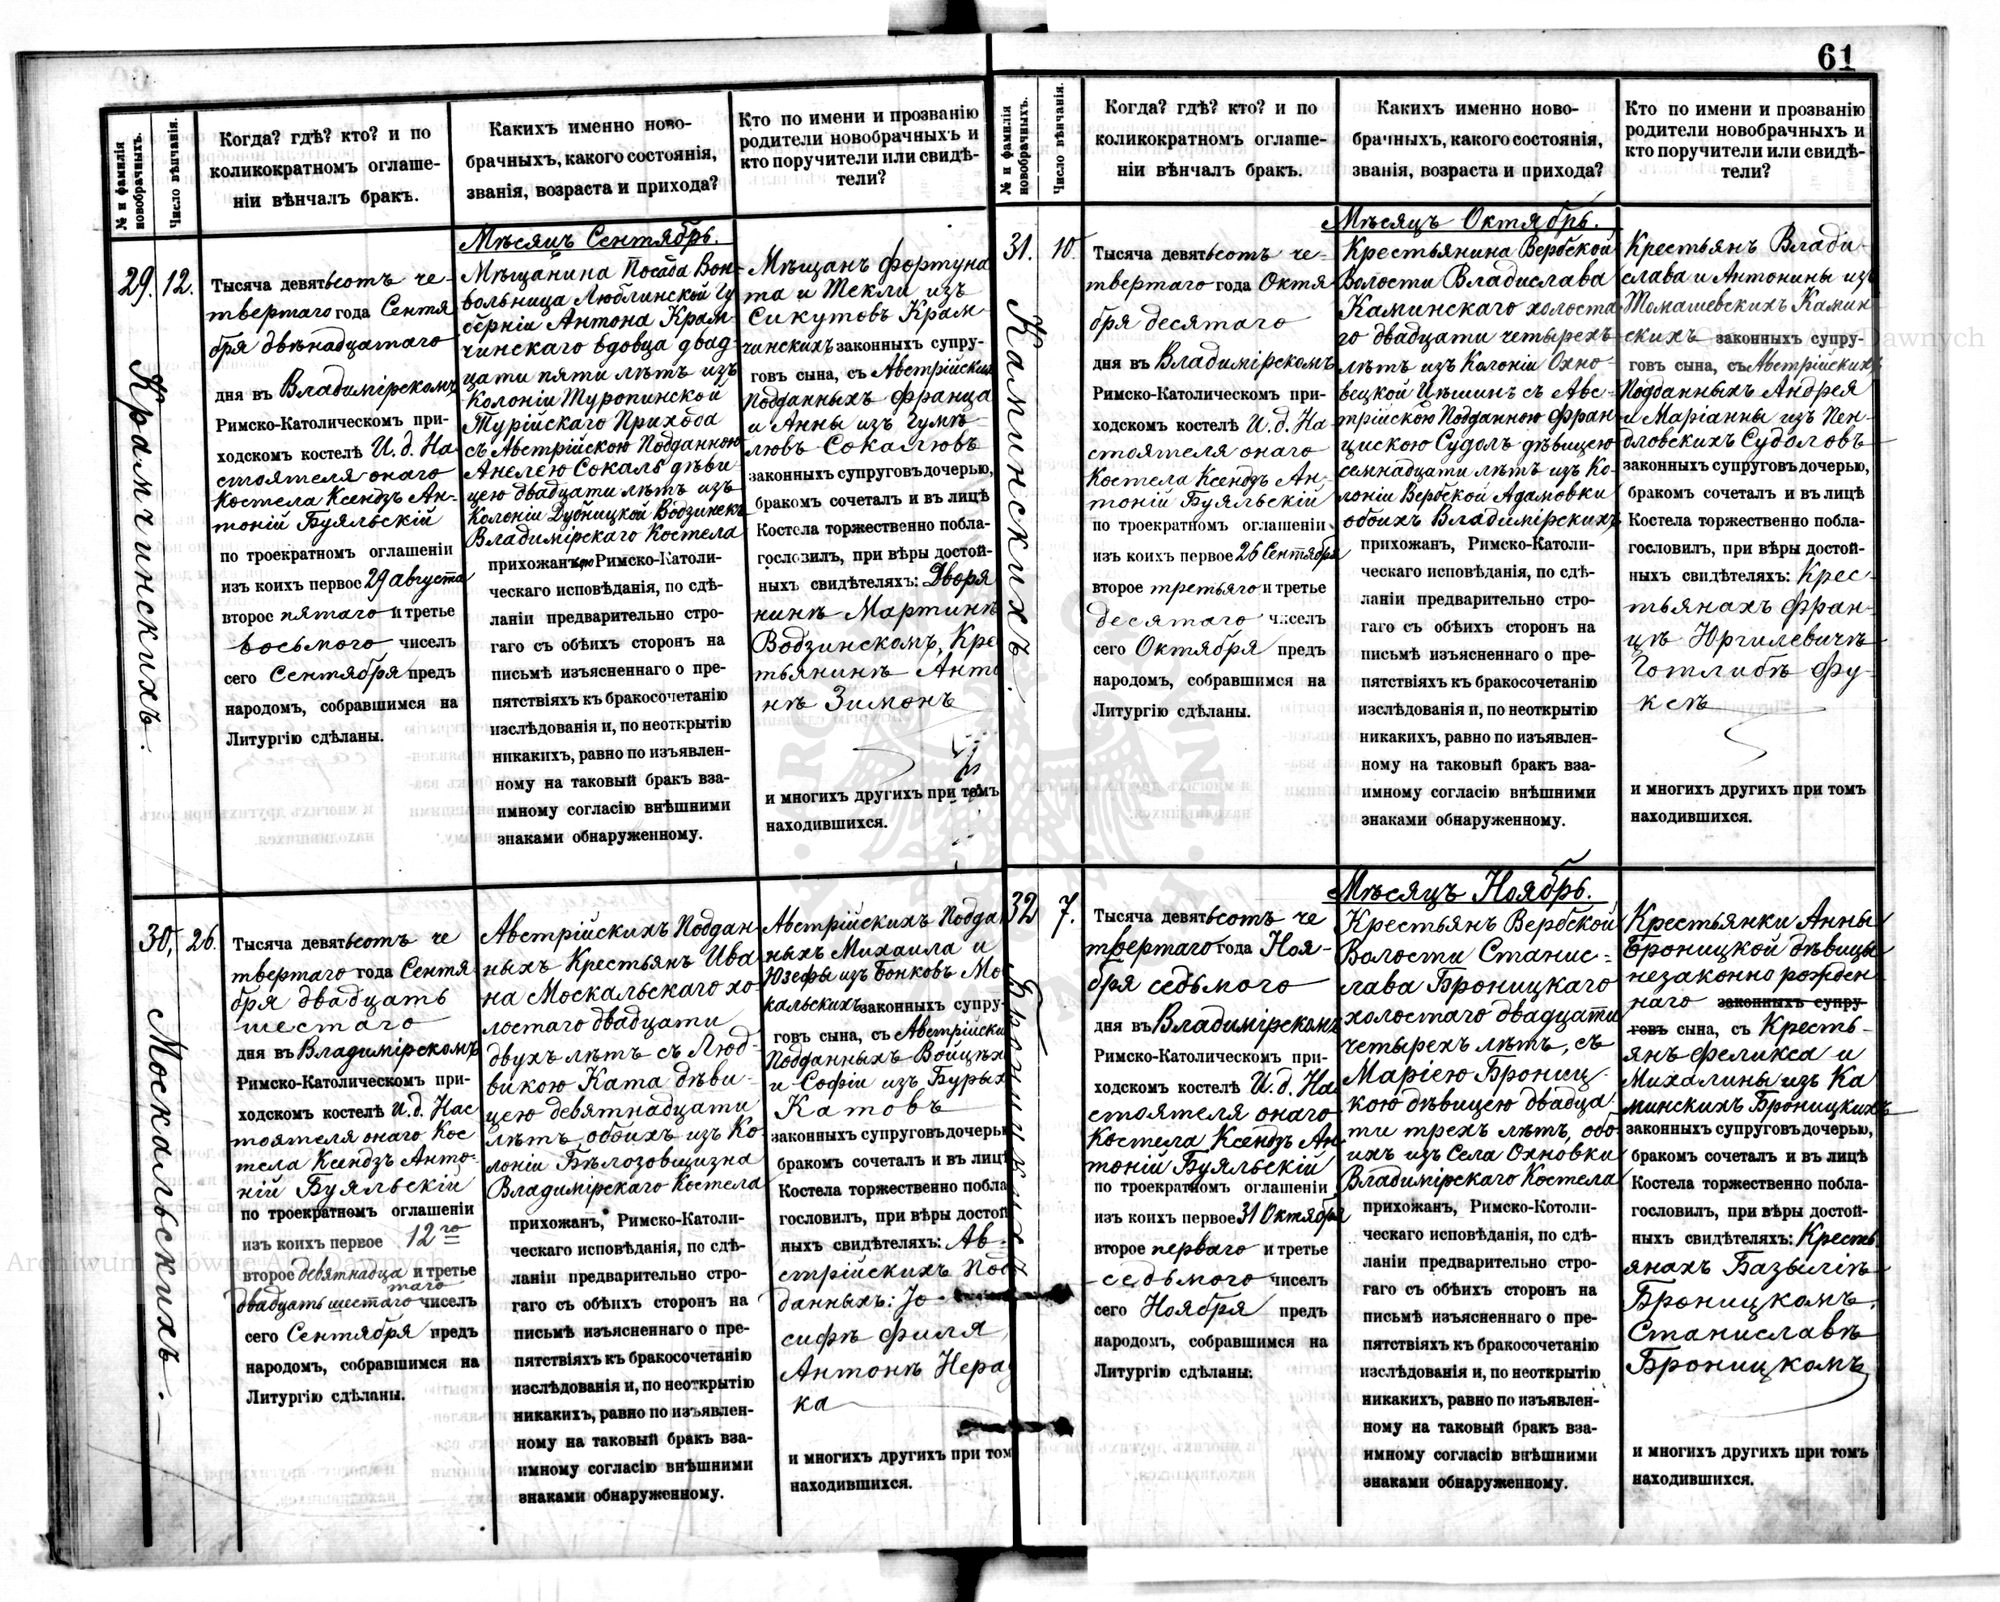 61
№ и фамилія новобрачныхъ.
Число вѣнчанія.
Когда? гдѣ? кто? и по
коликократномъ оглаше-
ніи вѣнчалъ бракъ.
Какихъ именно ново-
брачныхъ, какого состоянія,
званія, возраста и прихода?
Кто по имени и прозванію
родители новобрачныхъ и
кто поручители или свидѣ-
тели?
29.
12.
Крамчинскихъ.
Тысяча девятьсотъ че-
твертаго года Сентя
бря двѣнадцатаго
дня въ Владимірскомъ
Римско-Католическомъ при-
ходскомъ костелѣ И. д. На
стоятеля онаго
Костела Ксендзъ Ан-
тоній Буяльскій
по троекратномъ оглашеніи
изъ коихъ первое 29 августа
второе пятаго и третье
восьмого чиселъ
сего Сентября предъ
народомъ, собравшимся на
Литургію сдѣланы.
Мѣсяцъ Сентябрь.
Мѣщанина Посада Вон-
вольница Люблинской Гу
берніи Антона Крам-
чинскаго вдовца двад-
цати пяти лѣтъ изъ
Колоніи Туропинской
Турійскаго Прихода
съ Австрійскою Подданною
Анелею Сокалъ дѣви-
цею двадцати лѣтъ изъ
Колоніи Дубницкой Водзинекъ
Владимірскаго Костела
прихожанкою Римско-Католи-
ческаго исповѣданія, по сдѣ-
ланіи предварительно стро-
гаго съ обѣихъ сторонъ на
письмѣ изъясненнаго о пре-
пятствіяхъ къ бракосочетанію
изслѣдованія и, по неоткрытію
никакихъ, равно по изъявлен-
ному на таковый бракъ вза-
имному согласію внѣшними
знаками обнаруженному.
Мѣщанъ Фортуна
та и Текли изъ
Сикутовъ Крам
чинскихъ законныхъ супру-
говъ сына, съ Австрійскихъ
Подданныхъ Франца
и Анны изъ Гумѣ-
лювъ Сокалювъ
законныхъ супруговъ дочерью,
бракомъ сочеталъ и въ лицѣ
Костела торжественно побла-
гословилъ, при вѣры достой-
ныхъ свидѣтеляхъ: Дворя
нинѣ Мартинѣ
Водзинскомъ, Кре
тьянинѣ Анто
нѣ Зимонъ
и многихъ другихъ при томъ
находившихся.
30.
26.
Москальскихъ.
Тысяча девятьсотъ че
твертаго года Сентя
бря двадцать
шестаго
дня въ Владимірскомъ
Римско-Католическомъ при-
ходскомъ костелѣ И. д. Нас
тоятеля онаго Кос
тела Ксендзъ Анто-
ній Буяльскій
по троекратномъ оглашеніи
изъ коихъ первое 12го
второе девятнадца и третье
таго
двадцать шестаго чиселъ
сего Сентября предъ
народомъ, собравшимся на
Литургію сдѣланы.
Австрійскихъ Поддан
ныхъ Крестьянъ Ива
на Москальскаго хо-
лостаго двадцати
двухъ лѣтъ съ Люд-
викою Ката дѣви-
цею девятнадцати
лѣтъ, обоихъ изъ Ко
лоніи Бѣлозовщизна
Владимірскаго Костела
прихожанъ, Римско-Католи-
ческаго исповѣданія, по сдѣ-
ланіи предварительно стро-
гаго съ обѣихъ сторонъ на
письмѣ изъясненнаго о пре-
пятствіяхъ къ бракосочетанію
изслѣдованія и, по неоткрытію
никакихъ, равно по изъявлен-
ному на таковый бракъ вза-
имному согласію внѣшними
знаками обнаруженному.
Австрійскихъ Подда
ныхъ Михаила и
Юзефы изъ Бонковъ Мо
кальскихъ законныхъ супру-
говъ сына, съ Австрійски
Подданныхъ Войцѣх
и Софіи изъ Бурых
Катовъ
законныхъ супруговъ дочерью
бракомъ сочеталъ и въ лицѣ
Костела торжественно побла
гословилъ, при вѣры достой
ныхъ свидѣтеляхъ: Ав-
стрійскихъ Под
данныхъ: Іо
сифѣ Филя,
Антонѣ Нера
ка
и многихъ другихъ при том
находившихся.
№ и фамилія новобрачныхъ.
Число вѣнчанія.
Когда? гдѣ? кто? и по
коликократномъ оглаше-
ніи вѣнчалъ бракъ.
Какихъ именно ново-
брачныхъ, какого состоянія,
званія, возраста и прихода?
Кто по имени и прозванію
родители новобрачныхъ и
кто поручители или свидѣ-
тели?
31.
10.
Каминскихъ.
Тысяча девятьсотъ че-
твертаго года Октя
бря десятаго
дня въ Владимірскомъ
Римско-Католическомъ при-
ходскомъ костелѣ И. д. На
стоятеля онаго
Костела Ксендзъ Ан-
тоній Буяльскій
по троекратномъ оглашеніи
изъ коихъ первое 26 Сентября
второе третьяго и третье
десятаго чиселъ
сего Октября предъ
народомъ, собравшимся на
Литургію сдѣланы.
Мѣсяцъ Октябрь.
Крестьянина Вербской
Волости Владислава
Каминскаго холоста
го двадцати четырехъ
лѣтъ изъ Колоніи Охно-
вецкой Цѣшинъ съ Авс-
трійскою Подданною Фран
цискою Судолъ дѣвицею
семнадцати лѣтъ изъ Ко-
лоніи Вербской Адамовки
обоихъ Владимірскихъ
прихожанъ, Римско-Католи-
ческаго исповѣданія, по сдѣ-
ланіи предварительно стро-
гаго съ обѣихъ сторонъ на
письмѣ изъясненнаго о пре-
пятствіяхъ къ бракосочетанію
изслѣдованія и, по неоткрытію
никакихъ, равно по изъявлен-
ному на таковый бракъ вза-
имному согласію внѣшними
знаками обнаруженному.
Крестьянъ Влади-
слава и Антонины изъ
Томашевскихъ Камин
скихъ законныхъ супру-
говъ сына, съ Австрійскихъ
Подданныхъ Андрея
и Маріанны изъ Пен-
дловскихъ Судоловъ
законныхъ супруговъ дочерью,
бракомъ сочеталъ и въ лицѣ
Костела торжественно побла-
гословилъ, при вѣры достой-
ныхъ свидѣтеляхъ: Крес-
тьянахъ Фран-
цѣ Юргилевичѣ
Готлибѣ Фу-
ксъ
и многихъ другихъ при томъ
находившихся.
32
7.
Броницкихъ
Тысяча девятьсотъ че
твертаго года Ноя-
бря седьмого
дня въ Владимірскомъ
Римско-Католическомъ при-
ходскомъ костелѣ И. д. На
стоятеля онаго
Костела Ксендзъ Ан
тоній Буяльскій
по троекратномъ оглашеніи
изъ коихъ первое 31 Октября
второе перваго и третье
седьмого чиселъ
сего Ноября предъ
народомъ, собравшимся на
Литургію сдѣланы.
Мѣсяцъ Ноябрь.
Крестьянъ Вербской
Волости Станис-
лава Броницкаго
холостаго двадцати
четырехъ лѣтъ, съ
Маріею Брониц-
кою дѣвицею двадца
ти трехъ лѣтъ, обо
ихъ изъ Села Охновки
Владимірскаго Костела
прихожанъ, Римско-Котоли-
ческаго исповѣданія, по сдѣ-
ланіи предварительно стро-
гаго съ обѣихъ сторонъ на
письмѣ изъясненнаго о пре-
пятствіяхъ къ бракосочетанію
изслѣдованія и, по неоткрытію
никакихъ, равно по изъявлен-
ному на таковый бракъ вза-
имному согласію внѣшними
знаками обнаруженному.
Крестьянки Анны
Броницкой дѣвицы
незаконно рожден-
наго законныхъ супру-
говъ сына, съ Кресть-
янъ Феликса и
Михалины изъ Ка
минскихъ Броницкихъ
законныхъ супруговъ дочерью,
бракомъ сочеталъ и въ лицѣ
Костела торжественно побла-
гословилъ, при вѣры достой-
ныхъ свидѣтеляхъ: Кресть
янахъ Базыліѣ
Броницкомъ,
Станиславѣ
Броницкомъ
и многихъ другихъ при томъ
находившихся.
Archiwum Główne Akt Dawnych
Główne Akt Dawnych